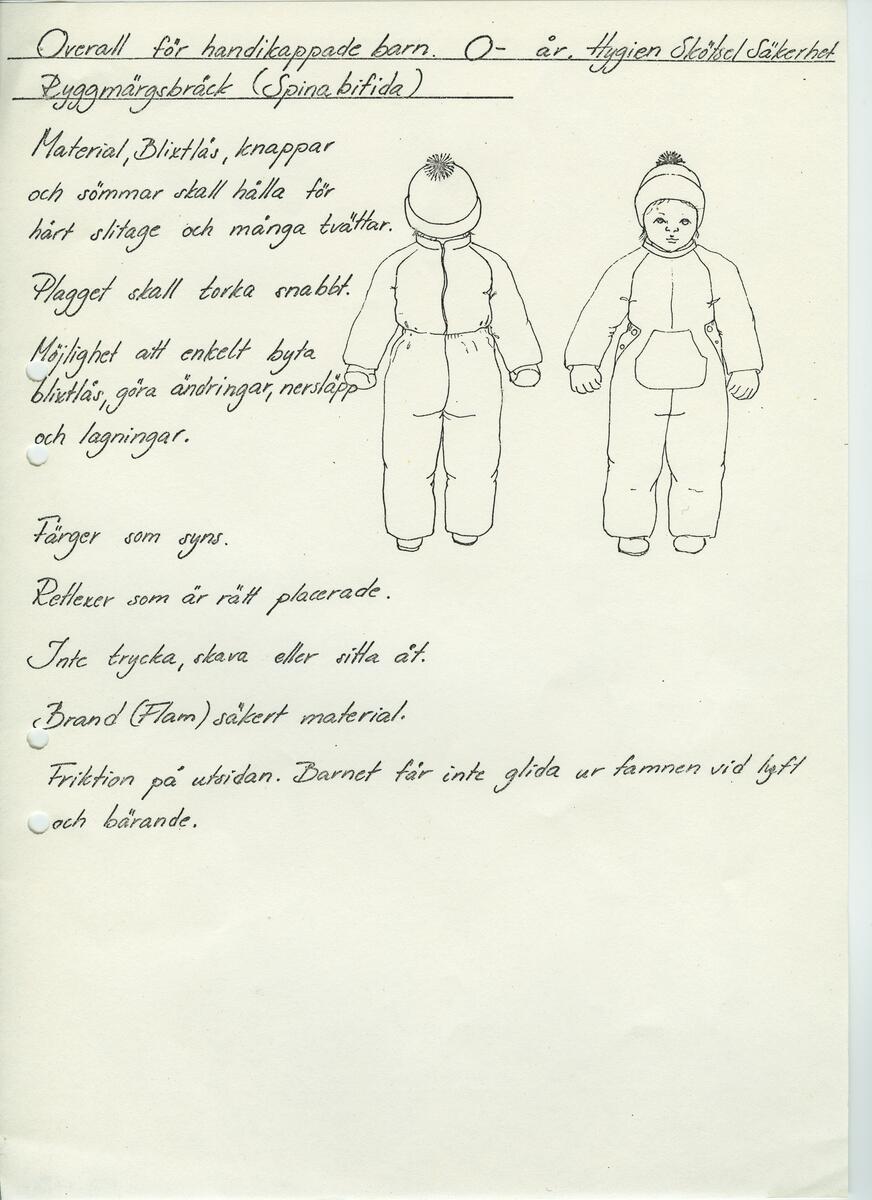 Overall för handikappade barn. 0- år. Hygien Skötsel Säkerhet
Ryggmärgsbråck (Spina bifida)
Material, Blixtlås, knappar
och sömmar skall hålla för
hårt slitage och många tvättar.
Plagget skall torka snabbt.
Möjlighet att enkelt byta
blixtlås, göra ändringar, nersläpp
och lagningar.
Färger som syns.
Reflexer som är rätt placerade.
Inte trycka, skava eller sitta åt.
Brand (Flam) säkert material.
Friktion på utsidan. Barnet får inte glida ur famnen vid lyft
och bärande.